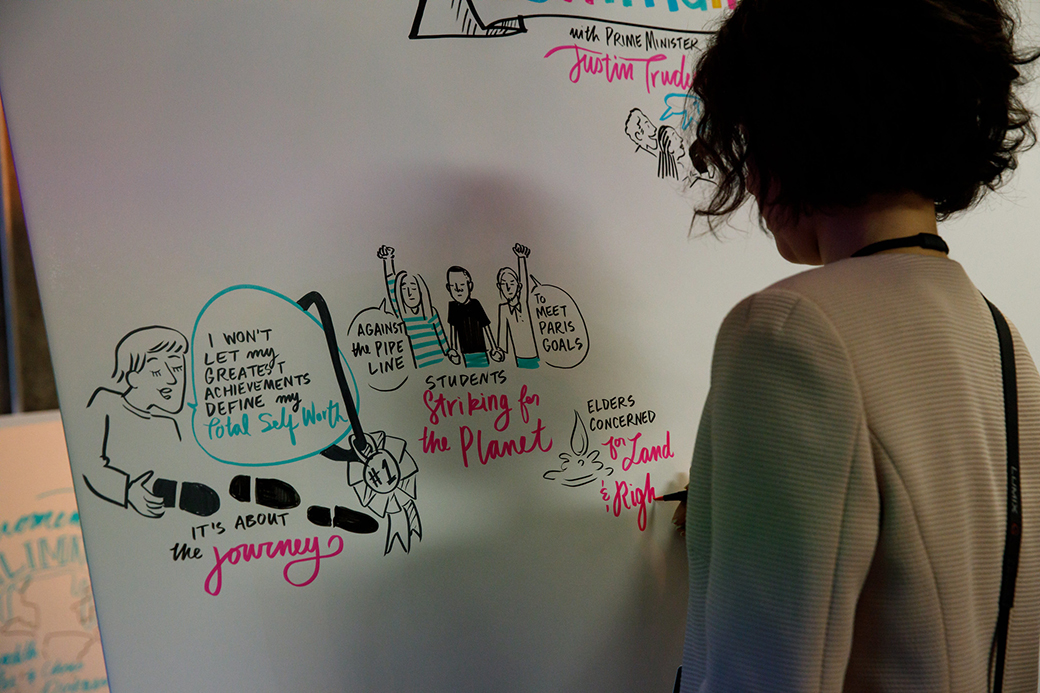 with PRIME MINISTER
Justin Trude
I WON'T
LET my
GREATEST
ACHIEVEMENTS
DEFINE my
Total Self Worth
#1
IT'S ABOUT
the journey
AGAINST
the PIPE
LINE
TO
MEET
PARIS
GOALS
STUDENTS
Striking for
the Planet
ELDERS
CONCERNED
for Land
& Righ
LUMIX